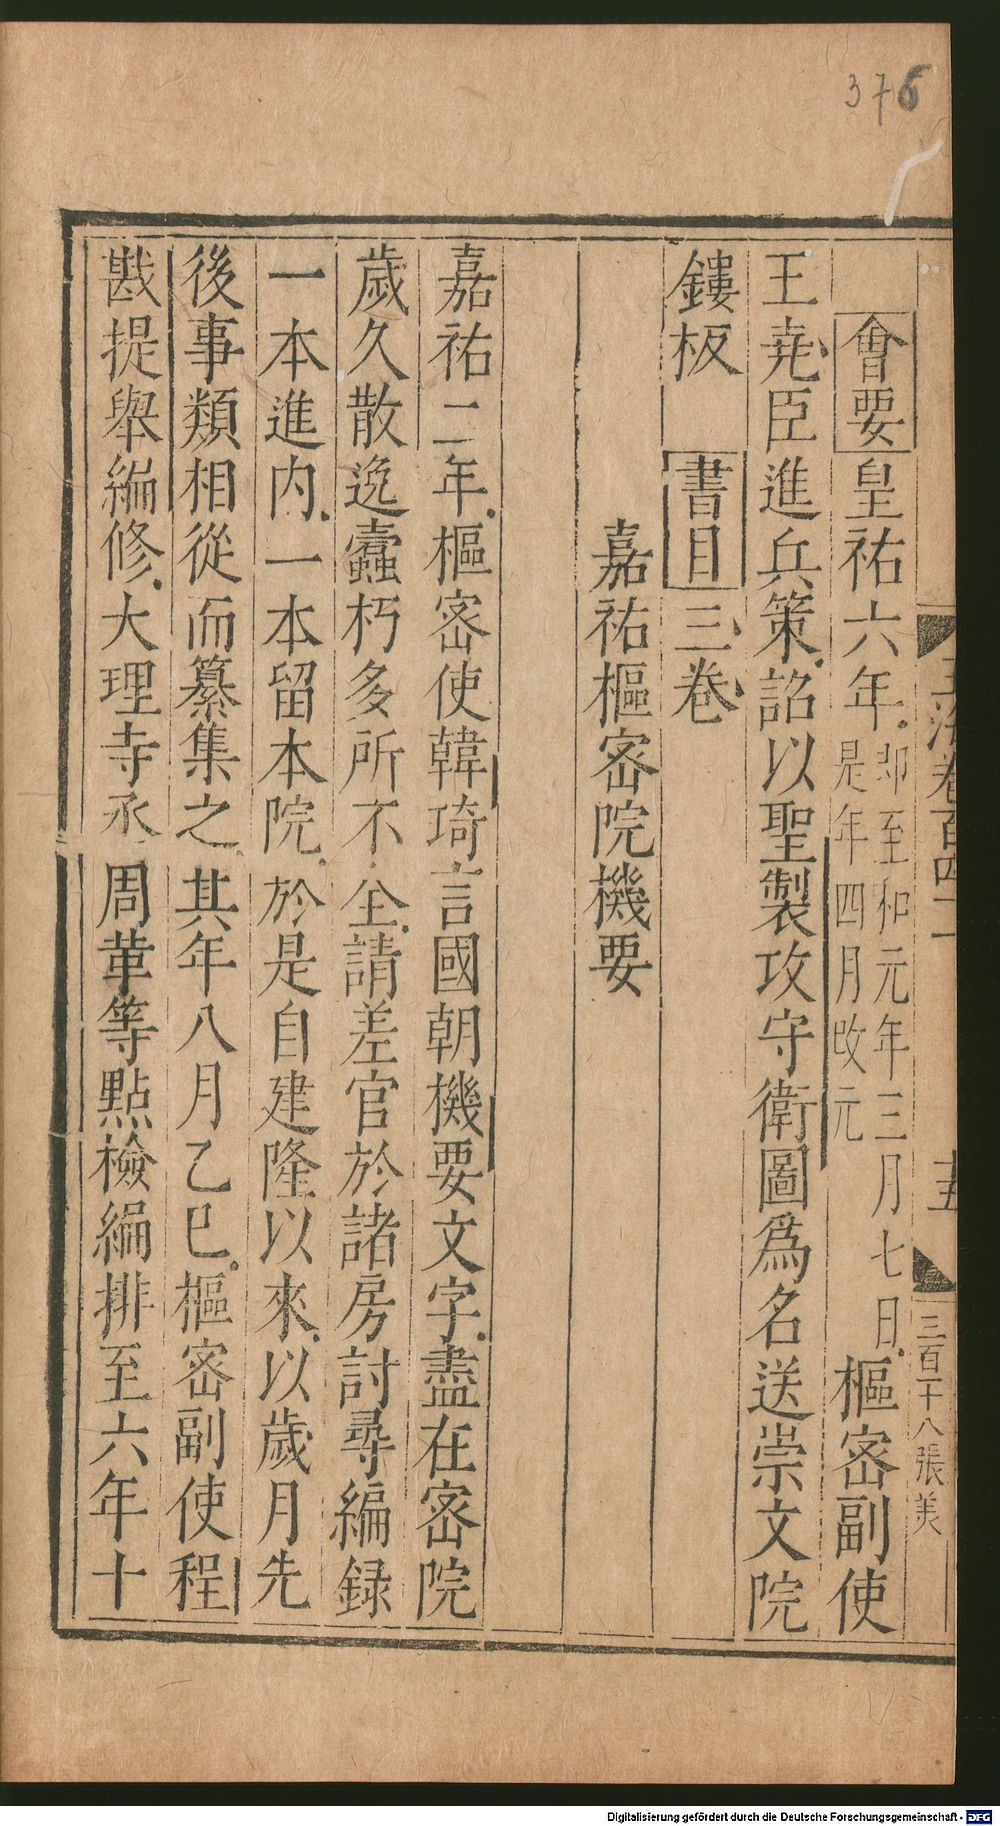 376
會要皇祐六年即至和元年三月七日是年四月改元樞密副使
王堯臣進兵策詔以聖製攻守衛圖爲名送崇文院
鏤板 書目三卷
嘉祐樞密院機要
嘉祐二年樞密使韓琦言國朝機要文字盡在密院
歲久散逸蠹朽多所不全請差官於諸房討尋編録
一本進内一本留本院於是自建隆以來以歲月先
後事類相從而纂集之其年八月乙巳樞密副使程
戡提舉編修大理寺丞周革等點檢編排至六年十
玉海卷百四十一 十五 三百十八張美
Digitalisierung gefördert durch die Deutsche Forschungsgemeinschaft - DFG